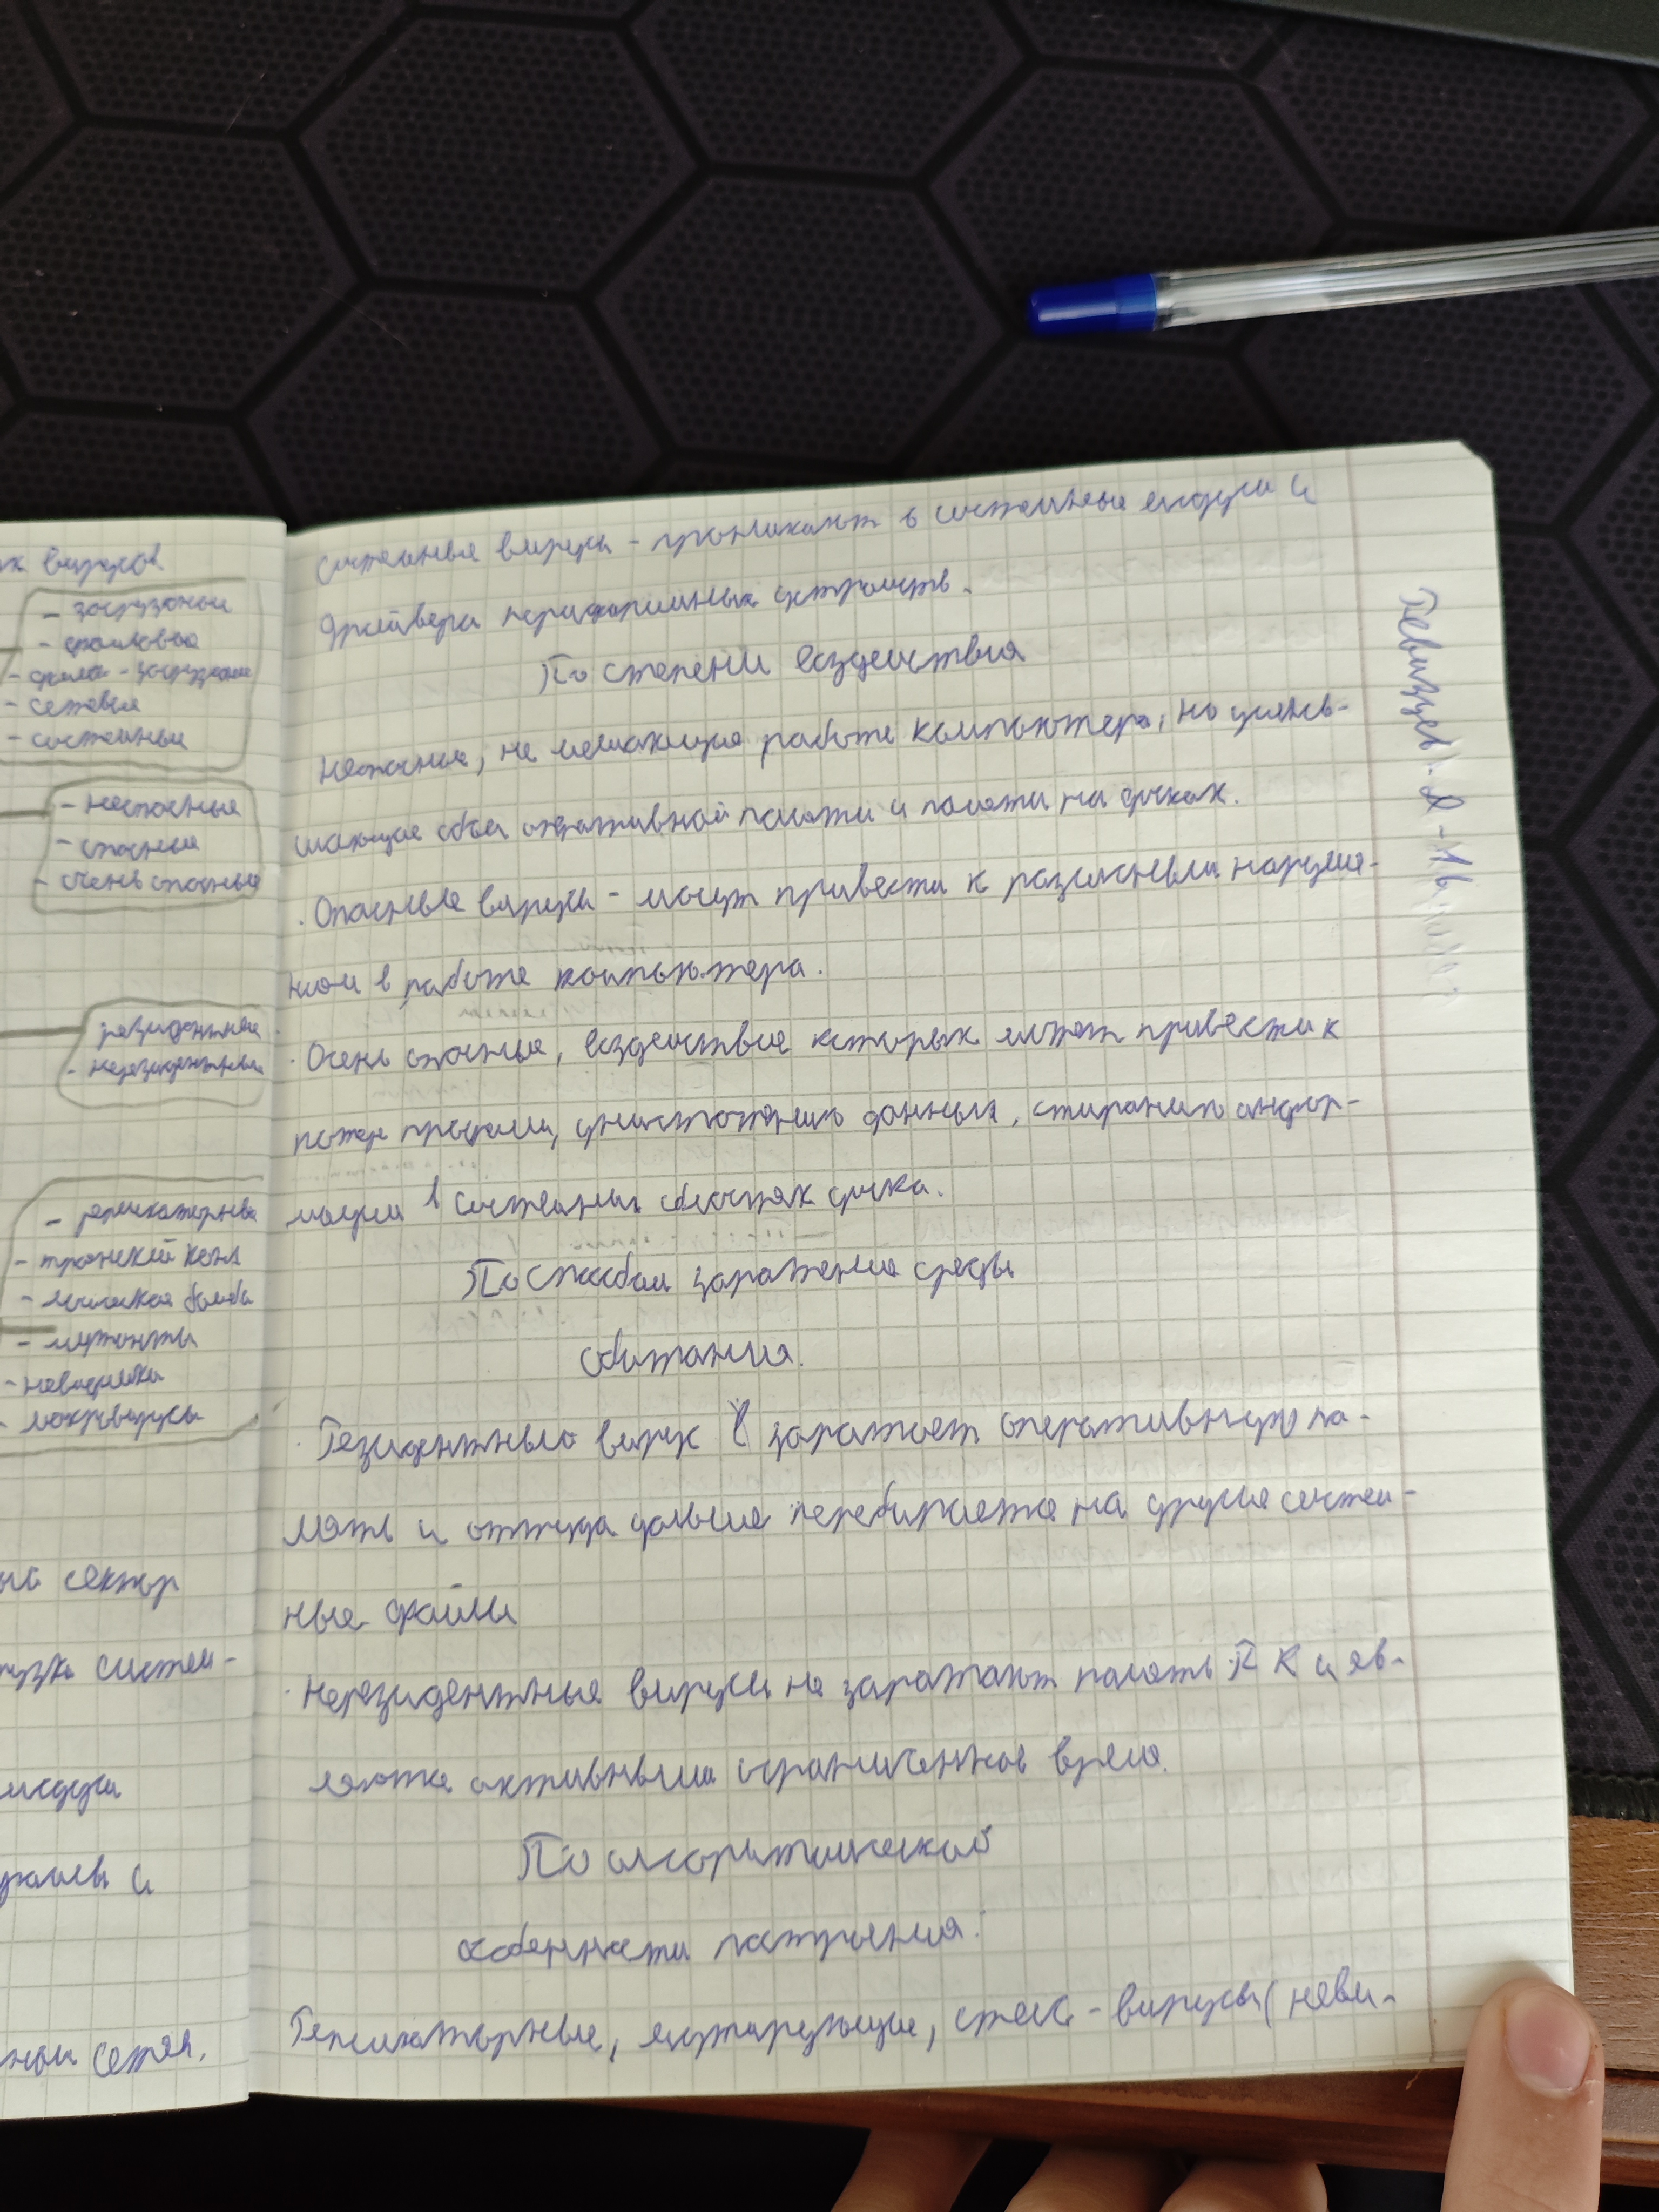 ых вирусов
- загрузочные
- файловые
- файлово - загрузочные
- сетевые
- системные
- неопасные
- опасные
- очень опасные
- резидентные
- нерезидентные
- репликаторные
- троянский конь
- логическая бомба
- мутанты
- невидимки
- макровирусы
ый сектор
систем-
и
ной сетях.
системные вирусы - проникают в системные модули и
драйвера периферийных устройств.
По степени воздействия
неопасные, не мешающие работе компьютера, но умень-
шающие объем оперативной памяти и памяти на дисках.
· Опасные вирусы - могут привести к различным наруше-
ниям в работе компьютера.
· Очень опасные, воздействие которых может привести к
потере программ, уничтожению данных, стиранию инфор-
мации в системных областях диска.
По способам заражения среды
обитания.
· Резидентный вирус заражает оперативную па-
мять и оттуда дальше перебирается на другие систем-
ные файлы
· Нерезидентные вирусы не заражают память ПК и яв-
ляются активными ограниченное время.
По алгоритмической
особенности построения:
Репликаторные, мутирующие, стелс - вирусы (неви-